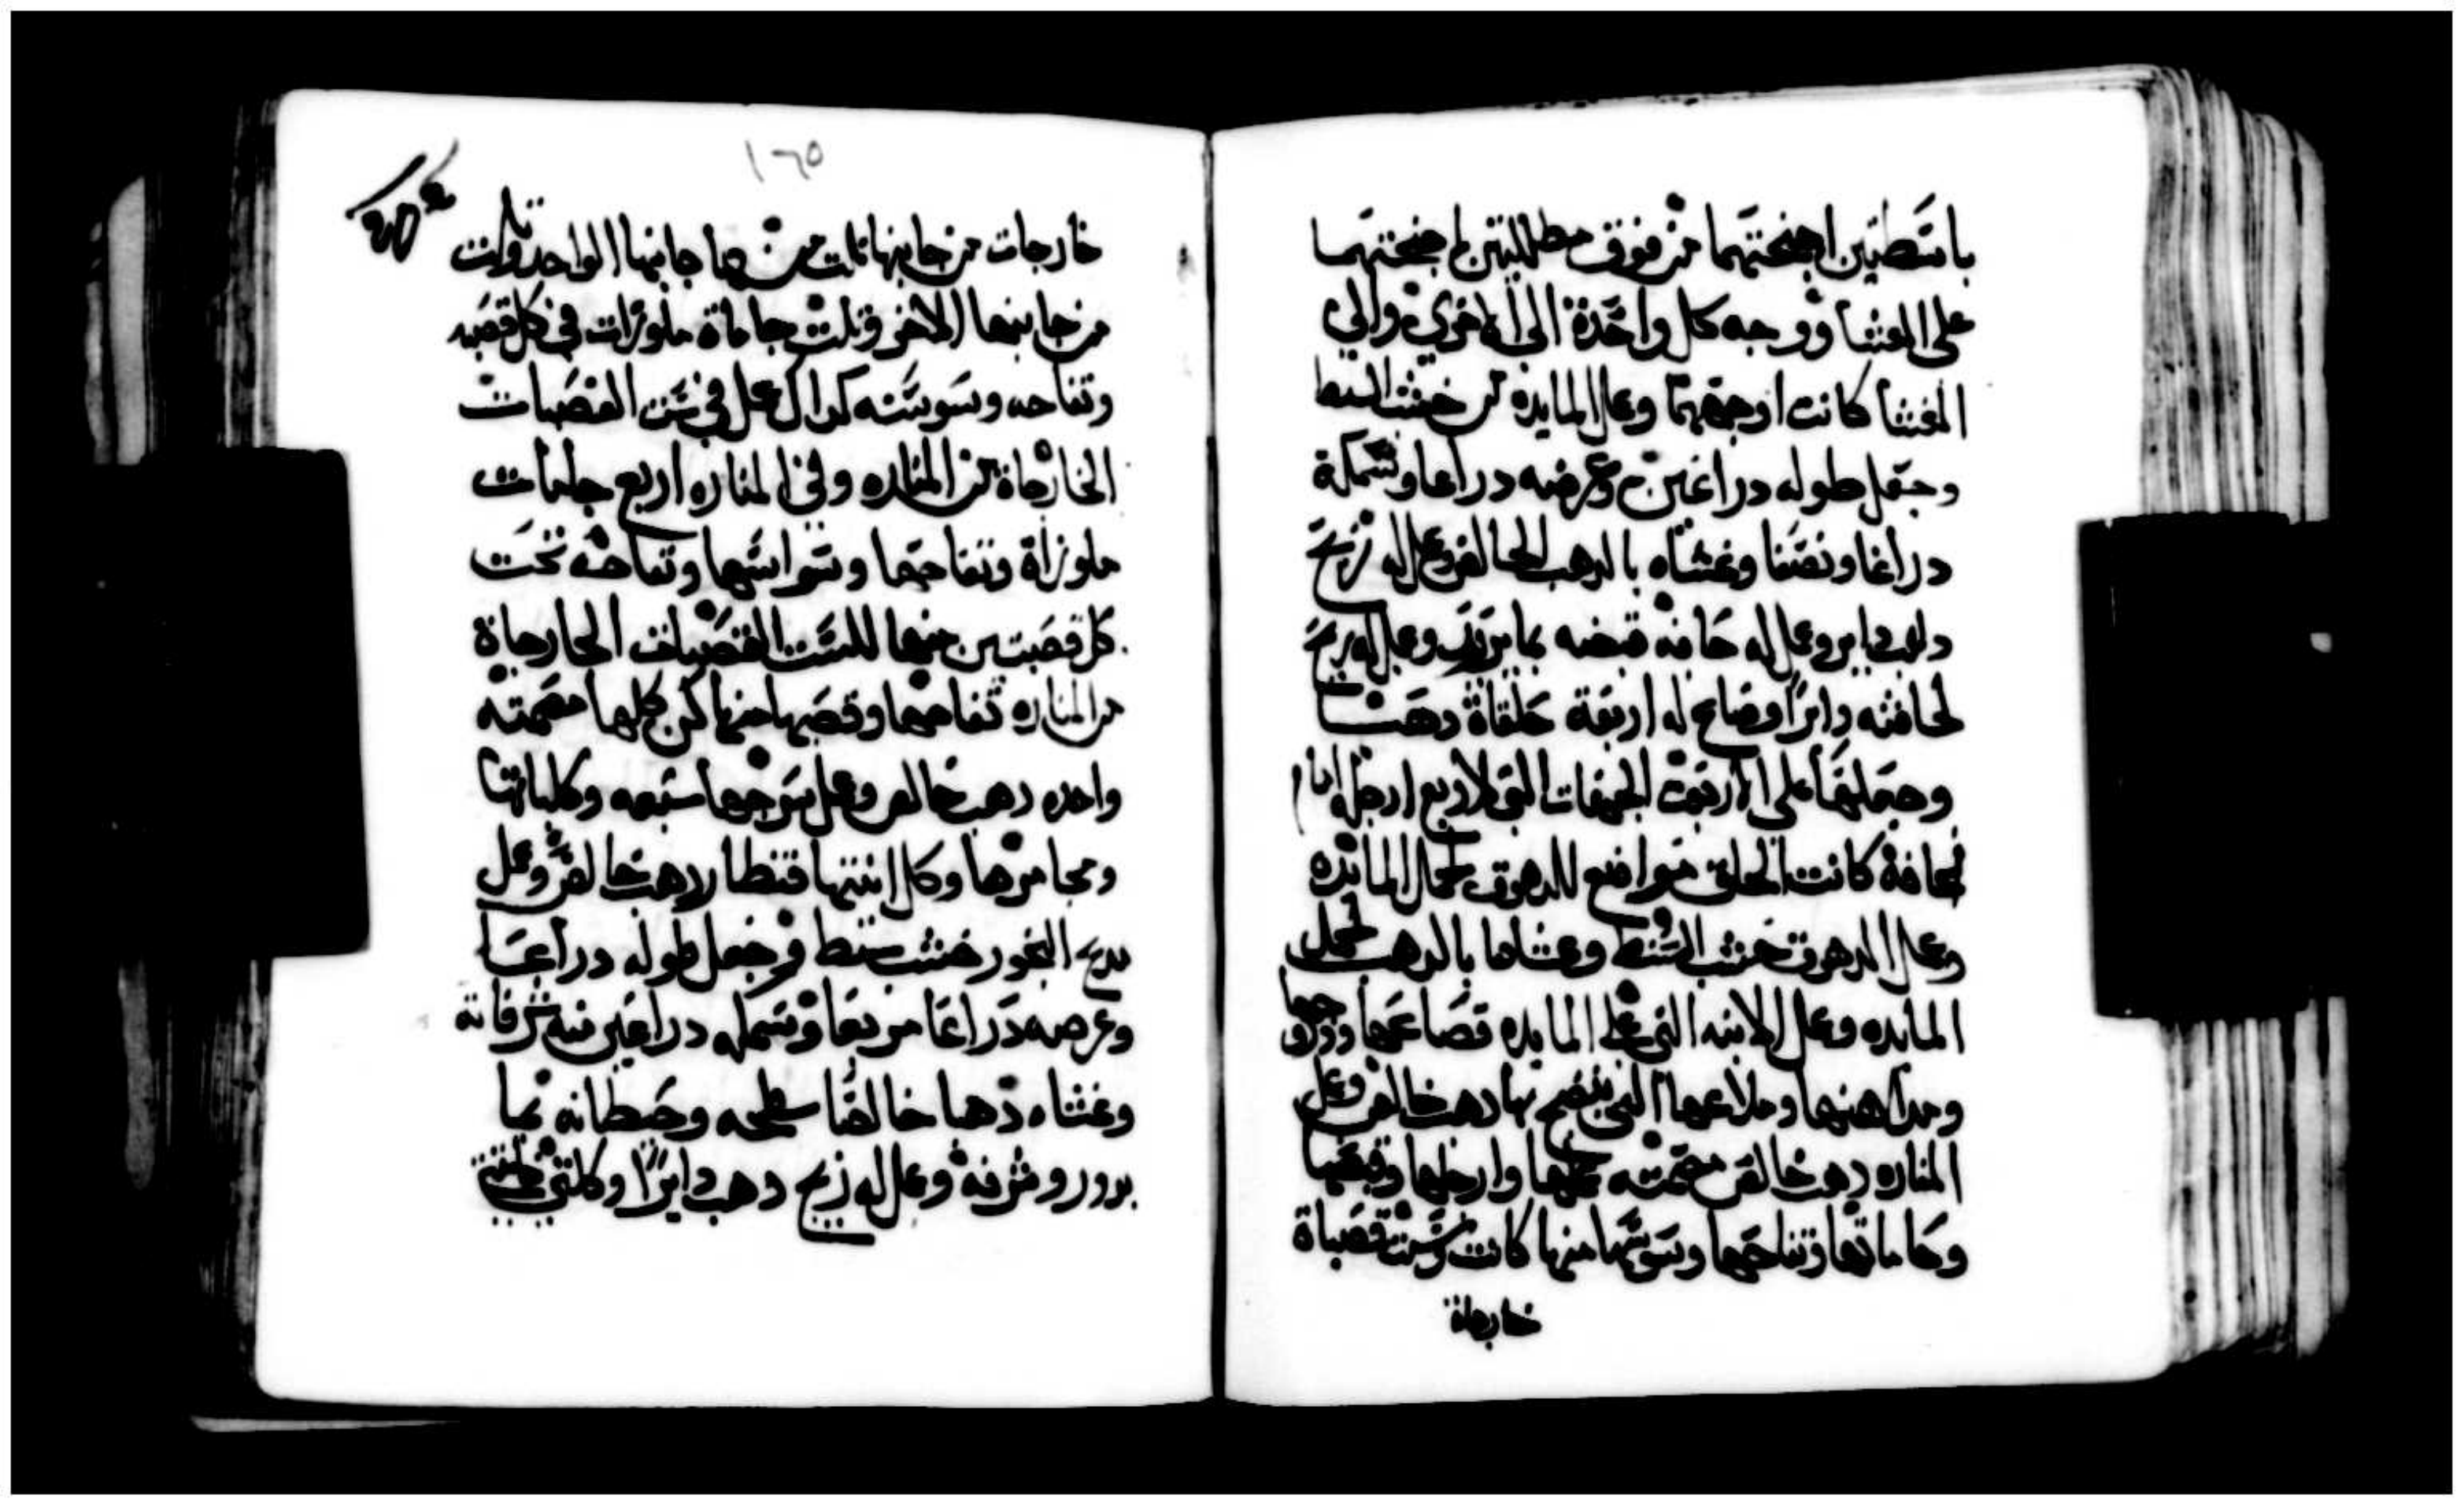 باسطين اجنحتهما من فوق مظللتين باجنحتهما
على الغشا ووجه كل واحدة الى الاخرى والي
الغشا كانت اوجههما وعمل المايده من خشب السنط
وجعل طوله دراعين وعرضه دراعا وسمكه
دراعا ونصفا وغشاه بالدهب الخالص وعمل له زيج
دهب داير وعمل له حافه قبضه بما يدور وعمل له زيج
لحافته دايرًا وصاغ له اربعة حلقاة دهب
وجعلها على الاربعة الجهات التي لاربع ارجله
لحافة كانت الحلق مواضع للدهوق لحمل المائده
وعمل الدهوق خشب السنط وغشاها بالدهب لحمل
المايده وعمل الانيه التي على المايده قصاعها
ومداهنها وملاعقها التي ينضح بها دهب خالص وعمل
المناره دهب خالص مصمته عملها وارجلها وقصبها
وجاماتها وتفاحها وسوسنها منها كانت وست قصباة
خارجاة
١٦٥
خارجات من جانبها ثلث من جانبها الواحد وثلت
من جانبها الاخر وثلث جاماة ملوزات في كل قصبه
وتفاحه وسوسنه كداك عمل في ست القصبات
الخارجاة من المناره وفي المناره اربع جامات
ملوزاة وتفاحها وسواسنها وتفاحه تحت
كل قصبتين منها للست القصبات الخارجاة
من المناره تفاحها وقصبها منها كن كلها مصمته
واحده دهب خالص وعمل سرجها سبعه وكلباتها
ومجامرها وكل انيتها قنطار دهب خالص وعمل
مدبح البخور خشب سنط وجعل طوله دراعا
وعرضه دراعا مربعا وسمكه دراعين منه شرفاته
وغشاه دهبا خالصا سطحه وحيطانه بما
يدور وشرفه وعمل له زيج دهب دايرًا وكلتي